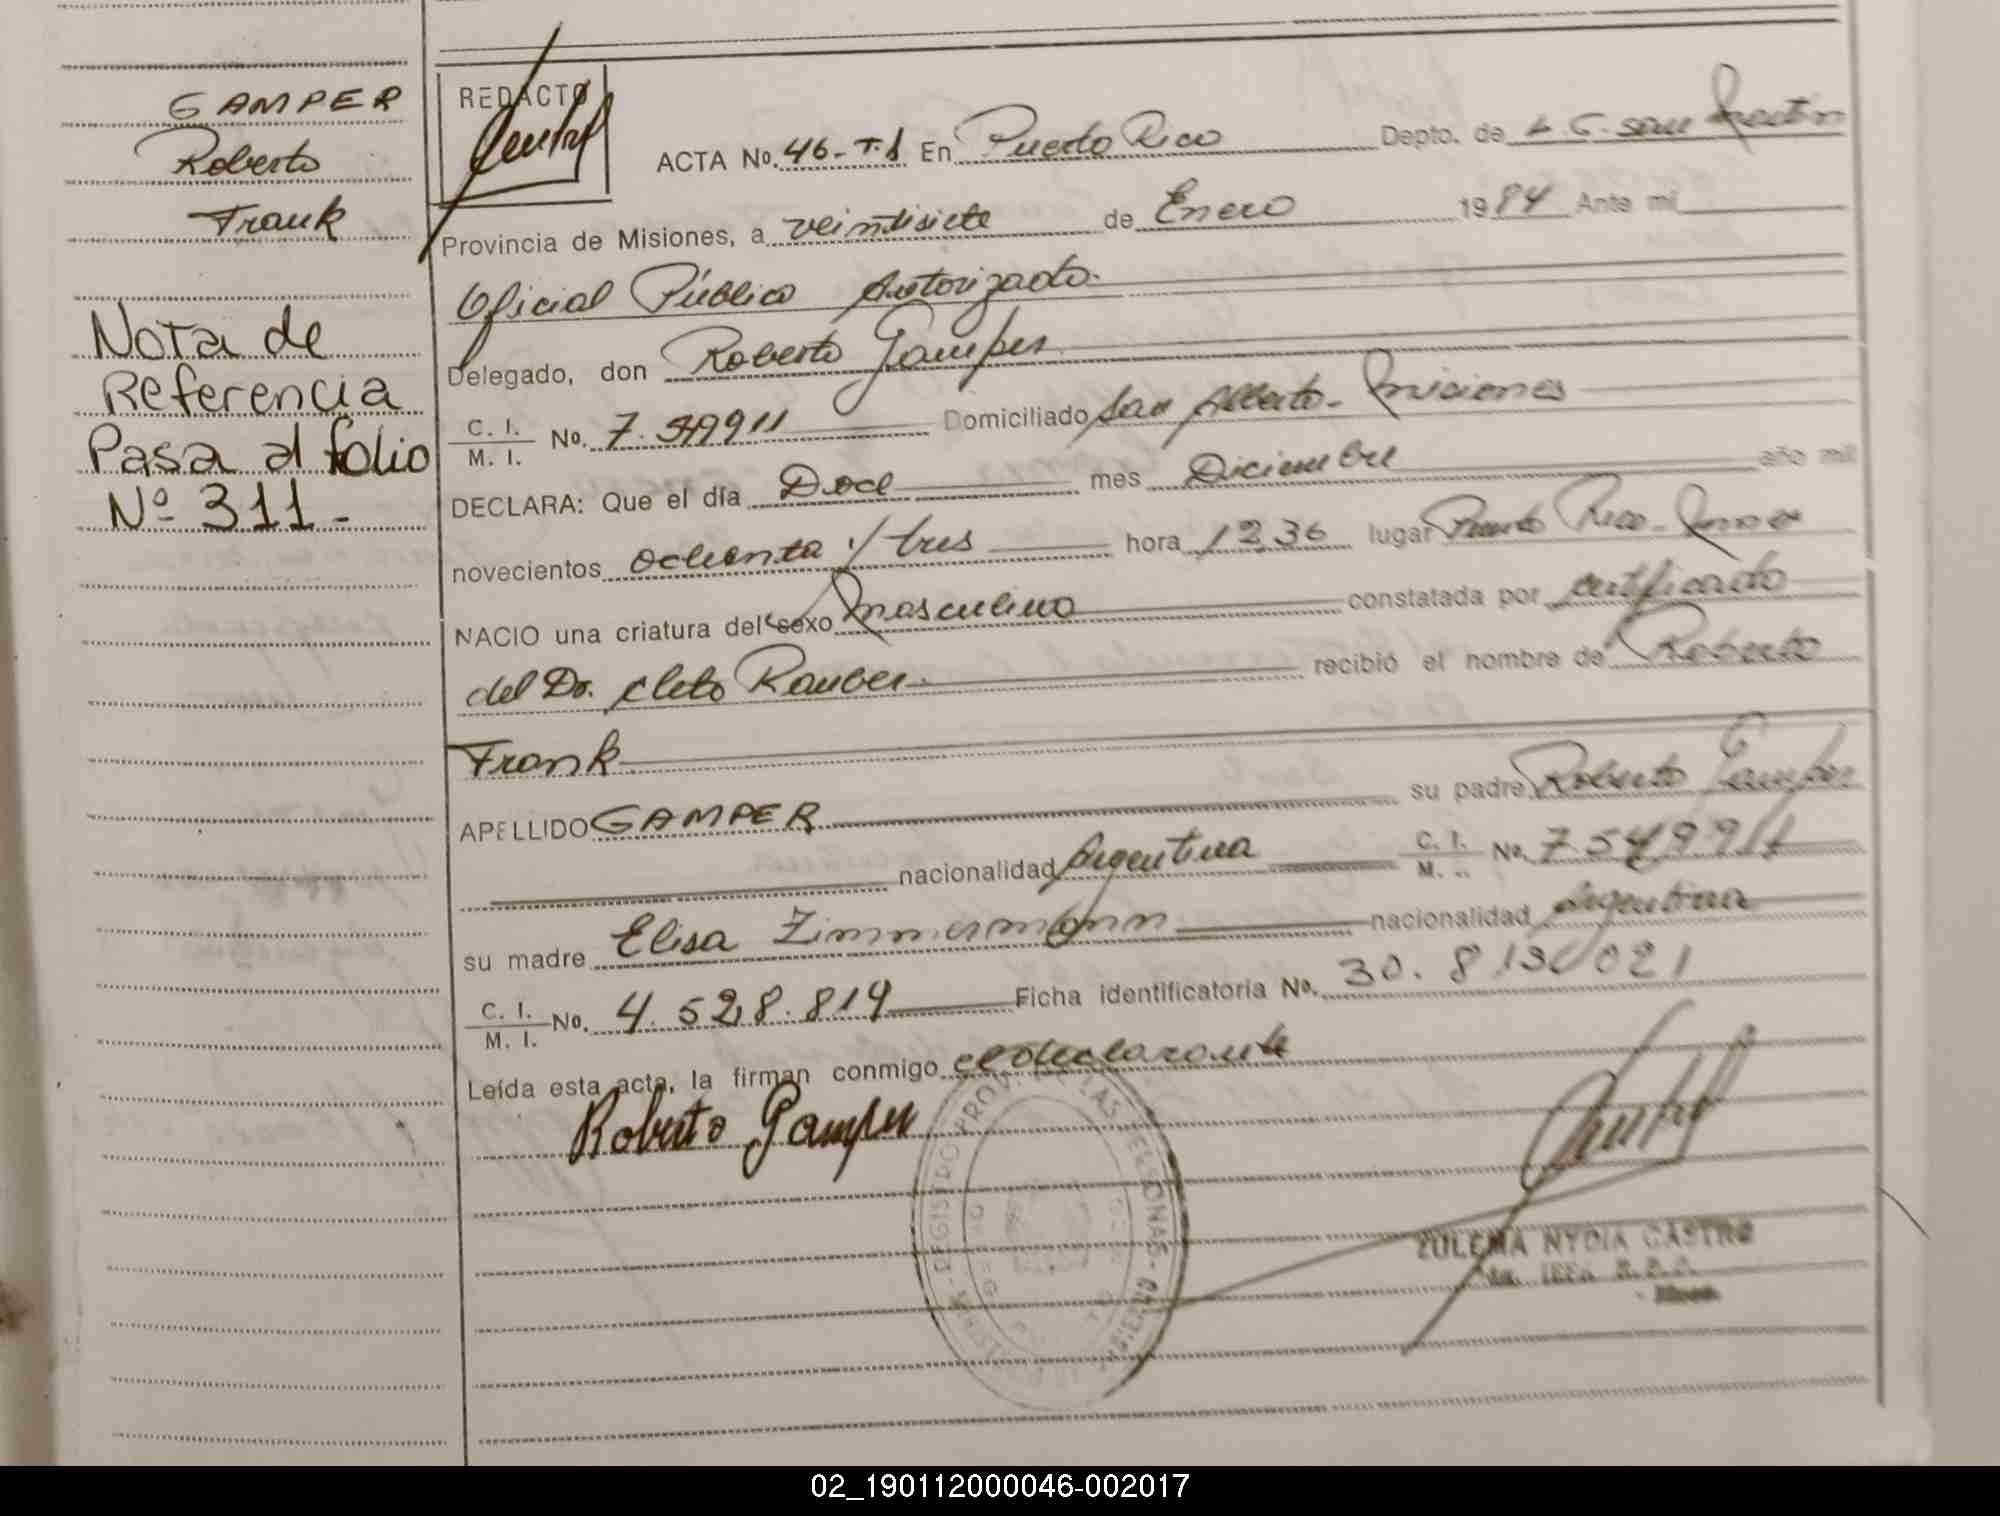 GAMPER
Roberto
Frank
Nota de
Referencia
Pasa al folio
Nº 311-
REDACTO
ACTA No. 46-T.1 En Puerto Rico Depto. de L G. San Martín
Provincia de Misiones, a veintisiete de Enero 1984 Ante mí
Oficial Público Autorizado.
Delegado, don Roberto Gamper
C. I. M. I. No. 7.549911 Domiciliado San Alberto - Misiones
DECLARA: Que el día Doce mes Diciembre año mil
novecientos ochenta y tres hora 12 36 lugar Puerto Rico
NACIO una criatura del sexo masculino constatada por certificado
del Dr. Cleto Rauber. recibió el nombre de Roberto
Frank
APELLIDO GAMPER su padre Roberto Gamper
nacionalidad Argentina C. I. M. I. No. 7.549911
su madre Elisa Zimmermann nacionalidad Argentina
C. I. M. I. No. 4.528.819 Ficha identificatoria No. 30.813 021
Leída esta acta, la firman conmigo el declarante
Roberto Gamper
ZULEMA NYDIA CASTRO
02_190112000046-002017